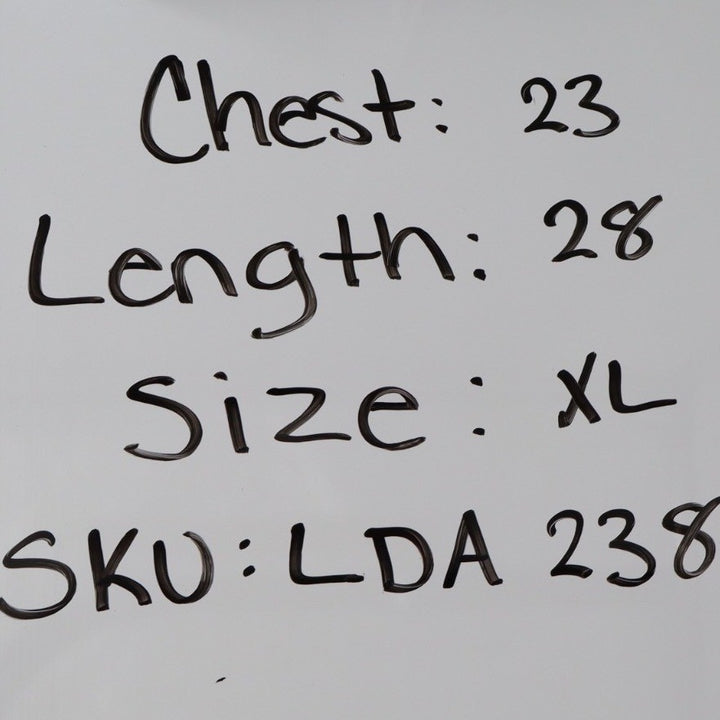 Chest: 23
Length: 28
Size: XL
SKU: LDA 238